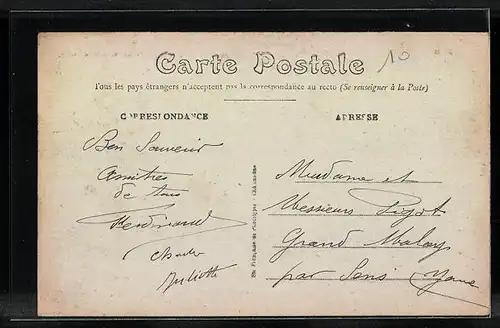 10
Carte Postale
Tous les pays étrangers n'acceptent pas la correspondance au recto (Se renseigner à la Poste)
CORRESPONDANCE
ADRESSE
Bon Souvenir
Amitiés
de tous
Ferdinand
Charles
Juliette
Madame et
Messieurs Pigot
Grand Malay
par Sens Yonne